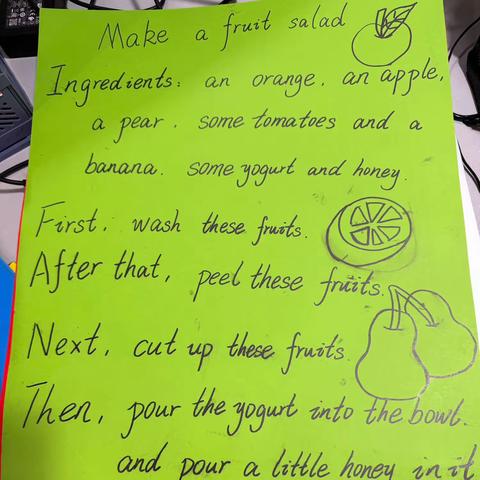 Make a fruit salad
Ingredients: an orange. an apple,
a pear. some tomatoes and a
banana. some yogurt and honey.
First. wash these fruits.
After that, peel these fruits.
Next, cut up these fruits.
Then, pour the yogurt into the bowl.
and pour a little honey in it